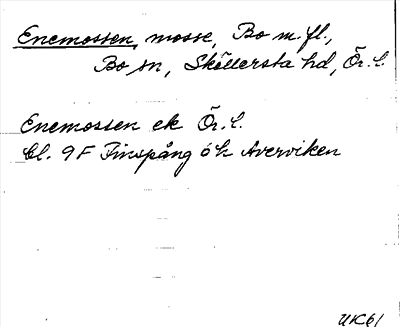 Enemossen, mosse, Bo m.fl.,
Bo sn, Sköllersta hd, Ör. l.
Enemossen ek Ör. l.
bl. 9F Finspång ök Averviken
UK61